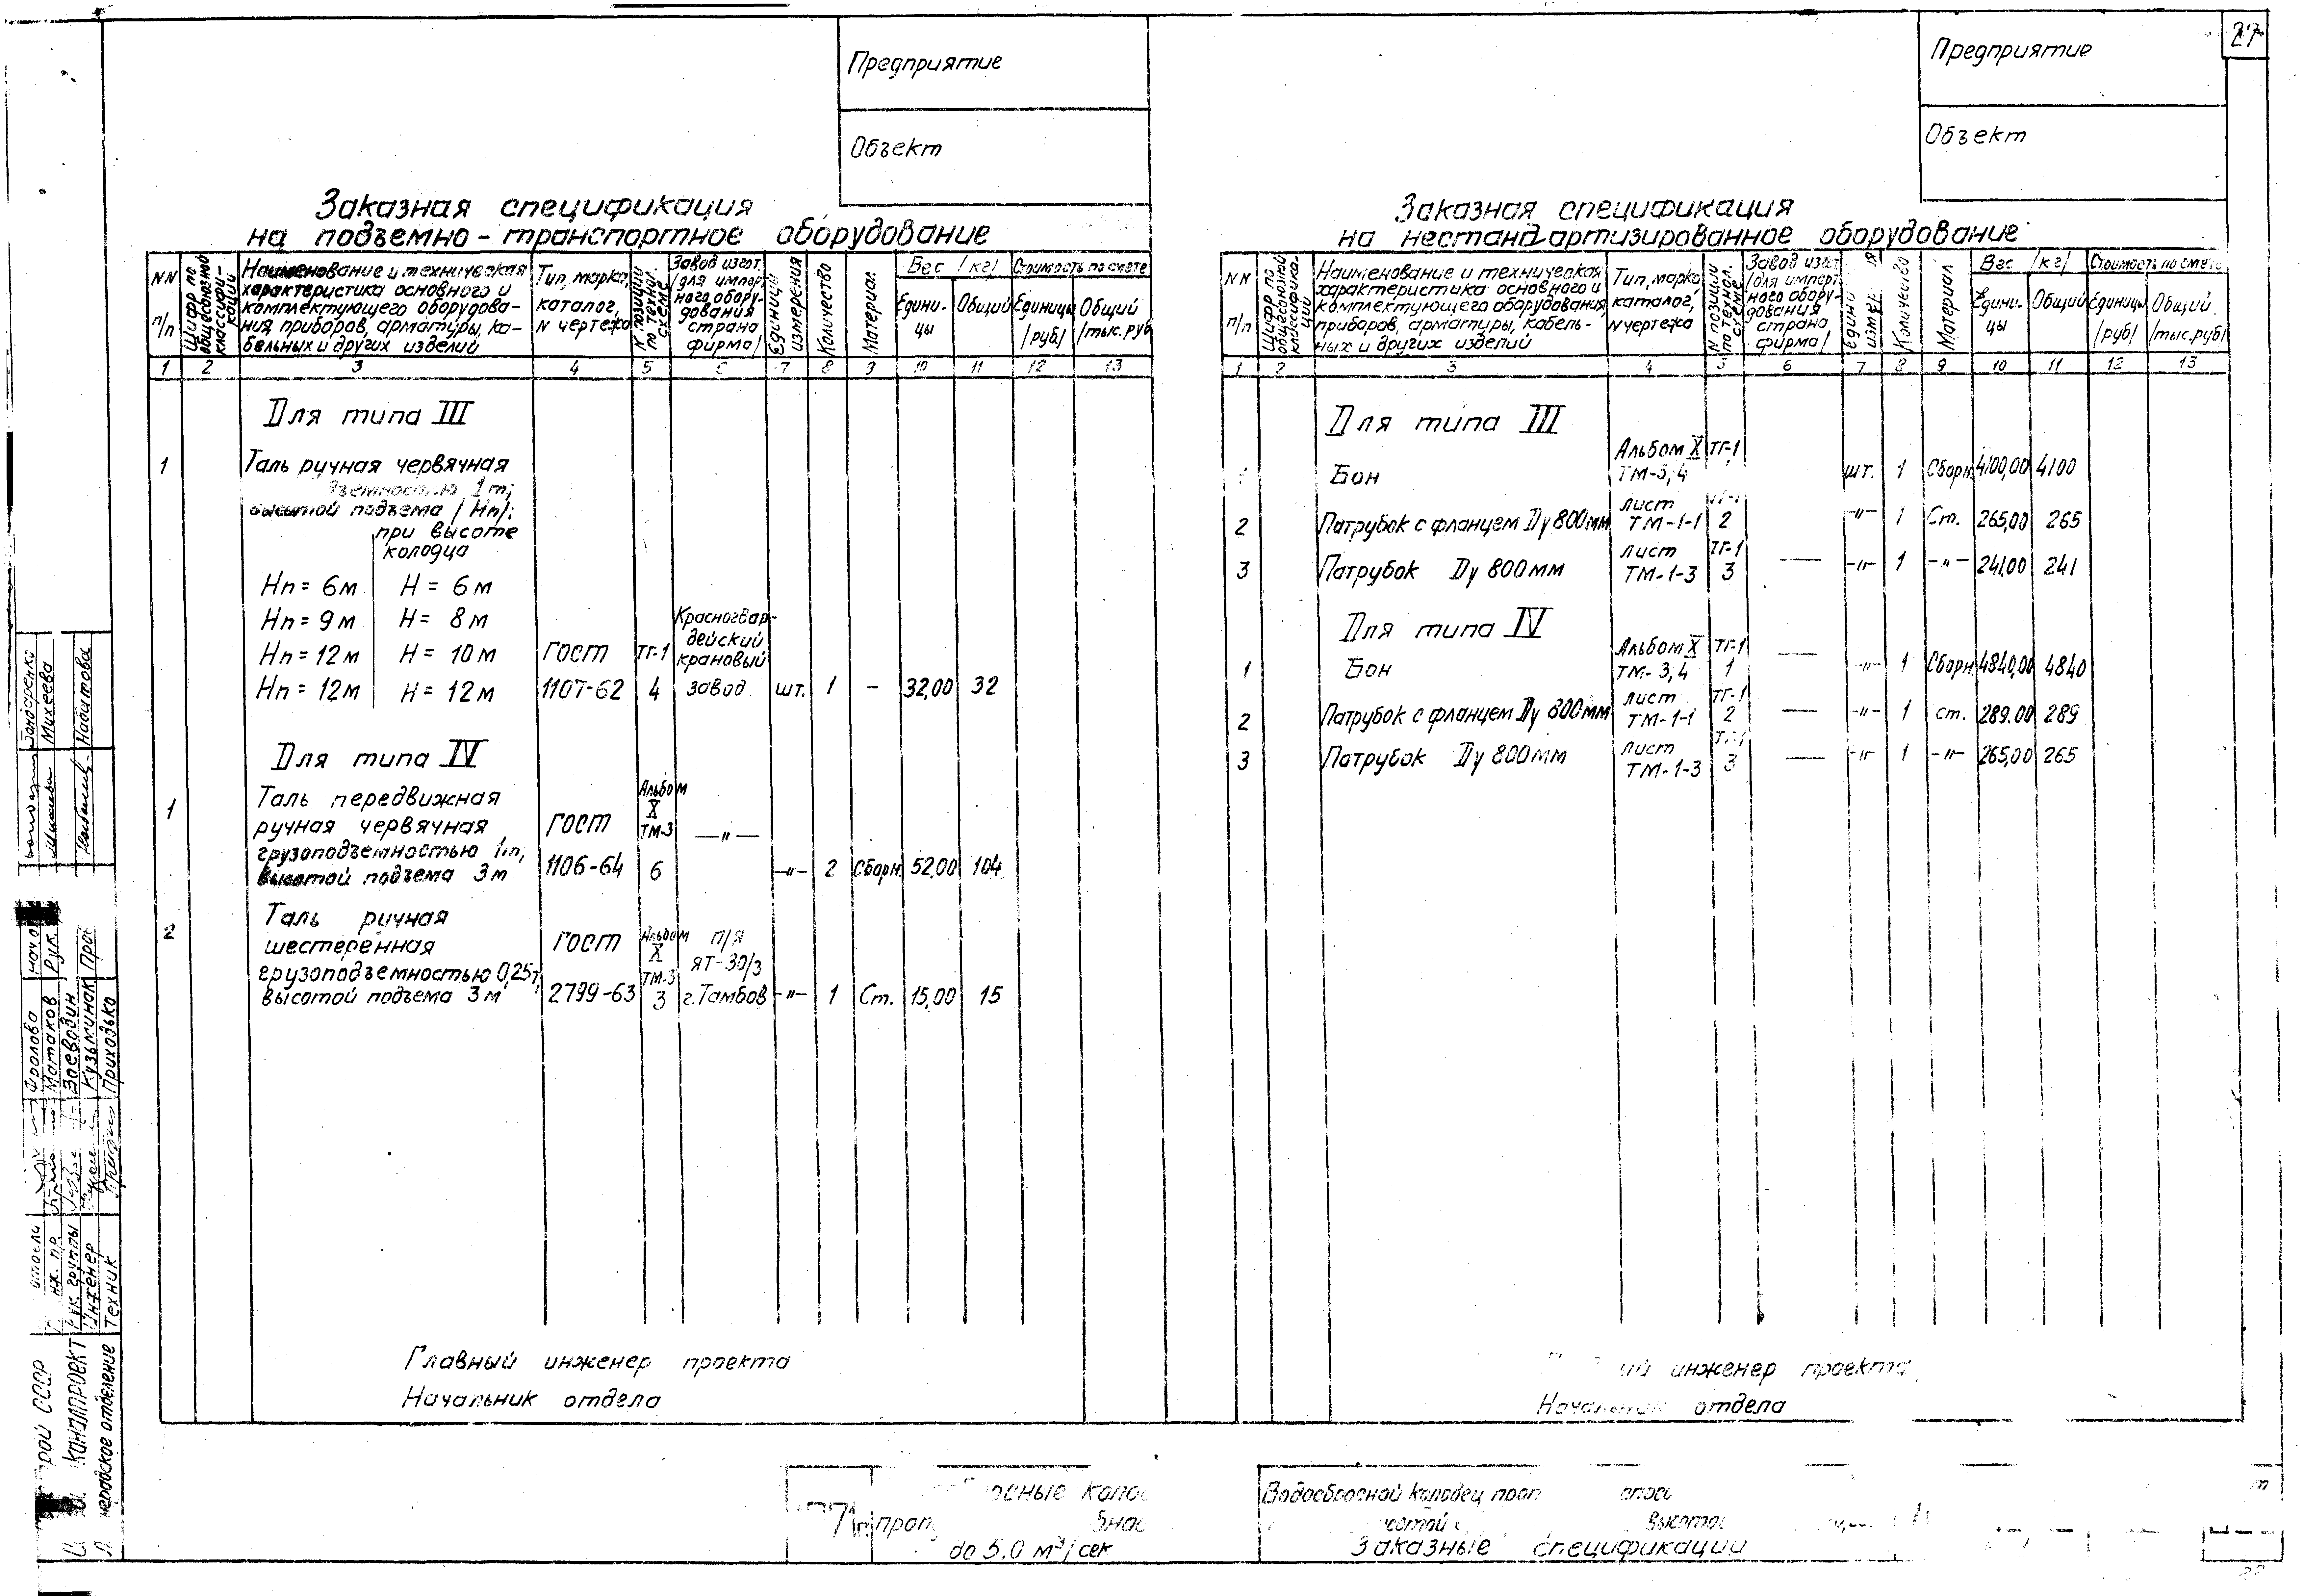 27
Предприятие
Объект
Заказная спецификация
на подъемно-транспортное оборудование
NN п/п
Шифр по общесоюзной классификации
Наименование и техническая
характеристика основного и
комплектующего оборудова-
ния, приборов, арматуры, ка-
бельных и других изделий
Тип, марка,
каталог,
N чертежа
N позиции по технол. схеме
Завод изгот.
/для импорт
ного обору-
дования
страна
фирма/
Единица измерения
Количество
Материал
Вес /кг/
Едини-
цы
Общий
Стоимость по смете
Единицы
/руб/
Общий
/тыс.руб
1 2 3 4 5 6 7 8 9 10 11 12 13
Для типа III
1 Таль ручная червячная
1т;
высотой подъема /Нп/:
при высоте
колодца
Нп = 6м Н = 6м
Нп = 9м Н = 8м
Нп = 12м Н = 10м
Нп = 12м Н = 12м
ГОСТ
1107-62
ТГ-1
4
Красногвар-
дейский
крановый
завод.
шт. 1 - 32,00 32
Для типа IV
1 Таль передвижная
ручная червячная
грузоподъемностью 1т,
высотой подъема 3м
ГОСТ
1106-64
Альбом
X
ТМ-3
6
—"—
—"— 2 Сборн. 52,00 104
2 Таль ручная
шестеренная
грузоподъемностью 0,25т,
высотой подъема 3м
ГОСТ
2799-63
Альбом
X
ТМ-3
3
п/я
ЯТ-30/3
г.Тамбов
—"— 1 Ст. 15,00 15
Главный инженер проекта
Начальник отдела
Предприятие
Объект
Заказная спецификация
на нестандартизированное оборудование
NN п/п
Шифр по общесоюзной классификации
Наименование и техническая
характеристика основного и
комплектующего оборудования,
приборов, арматуры, кабель-
ных и других изделий
Тип, марка
каталог,
N чертежа
N позиции по технол. схеме
Завод изгот.
/для импорт
ного обору-
дования
страна,
фирма/
Количество
Материал
Вес /кг/
Едини-
цы
Общий
Стоимость по смете
Единицы
/руб/
Общий
/тыс.руб/
1 2 3 4 5 6 7 8 9 10 11 12 13
Для типа III
Бон Альбом X ТМ-3,4 ТГ-1 шт. 1 Сборн. 4100,00 4100
2 Патрубок с фланцем Dу 800мм лист ТМ-1-1 ТГ-1 2 —"— 1 Ст. 265,00 265
3 Патрубок Dу 800мм лист ТМ-1-3 ТГ-1 3 — —"— 1 —"— 241,00 241
Для типа IV
1 Бон Альбом X ТМ-3,4 ТГ-1 1 — —"— 1 Сборн. 4840,00 4840
2 Патрубок с фланцем Dу 800мм лист ТМ-1-1 ТГ-1 2 — —"— 1 ст. 289.00 289
3 Патрубок Dу 800мм лист ТМ-1-3 ТГ-1 3 — —"— 1 —"— 265,00 265
инженер проекта
отдела
до 5.0 м³/сек
Водосбросной колодец
Заказные спецификации
Михеева
Фролова
Матаков
Воеводин
Кузьминак
Приходько
Рук. группы
Инженер
Техник
СССР
отделение